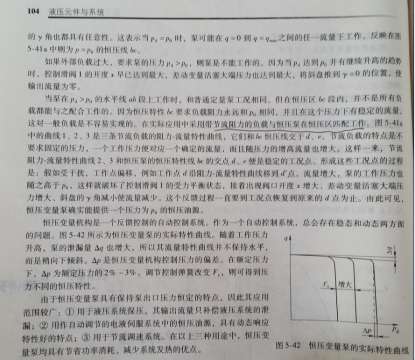 104 液压元件与系统
的 γ 角也都具有任意性。这表示当 p_s=p_0 时，泵可能在 q=0 到 q=q_max 之间的任一流量下工作，反映在图
5-41a 中则为 p=p_0 的恒压线 bc。
如果外部负载过大，要求泵的压力 p_s>p_0，则泵是不能工作的。因为当 p_s 达到 p_0 并有继续升高的趋势
时，控制滑阀 1 的开度 x 早已达到最大，差动变量活塞大端压力也达到最大，将斜盘推到 γ=0 的位置，使
输出流量为零。
当泵在 p_s>p_0 的水平线 ab 段上工作时，和普通定量泵工况相同，但在恒压区 bc 段内，并不是所有负
载都能与之配合工作的。因为恒压特性 bc 要求负载阻力永远和 p_0 相同，并且在这个压力下有稳定的流量，
这对一般负载是不容易实现的。在实际应用中采用带节流阻力的负载与恒压泵在恒压区匹配工作。图 5-41a
中的曲线 1、2、3 是三条节流负载的阻力-流量特性曲线，它们和 bc 恒压线交于 d、e。节流负载的特点是不
要求固定的压力，一个工作压力便对应一个确定的流量，而且随压力的增高流量也增大。这样一来，节流
阻力-流量特性曲线 2、3 和恒压泵的恒压特性线 bc 的交点 d、e 便是稳定的工况点。形成这些工况点的过程
是：假如受干扰，工作点偏移，例如工作点 d 沿阻力-流量特性曲线移到 d′点，流量增大，泵的工作压力也
随之高于 p_0，这样就破坏了控制滑阀 1 的受力平衡状态，接着出现阀口开度 x 增大、差动变量活塞大端压
力增大、斜盘的 γ 角减小使流量减少。这个反馈过程一直要到工况点恢复到原来的 d 点为止。由此可见，
恒压变量泵确实能提供一个压力为 p_0 的恒压油源。
恒压变量机构是一个反馈控制的自动控制系统，作为一个自动控制系统，总会存在稳态和动态两方面
的问题。图 5-42 所示为恒压变量泵的实际特性曲线。随着工作压力
升高，泵的泄漏量 Δq 也增大，所以其流量特性曲线并不保持水平，
而是稍向下倾斜。Δp 是恒压变量机构控制压力的偏差。在额定压力
下，Δp 为额定压力的 2%～3%。调节控制弹簧改变 F_s，则可得到压
力不同的恒压特性。
由于恒压变量泵具有保持泵出口压力恒定的特点，因此其应用
范围较广，①用于液压系统保压，其输出流量只补偿液压系统的泄
漏；②用作自动调节的电液伺服系统中的恒压油源，具有动态响应
特性好的特点；③用于节流调速系统。在以上三种用途中，恒压变
量泵均具有节省功率消耗、减少系统发热的优点。
q
F_s 增大
Δp
p_s
图 5-42 恒压变量泵的实际特性曲线